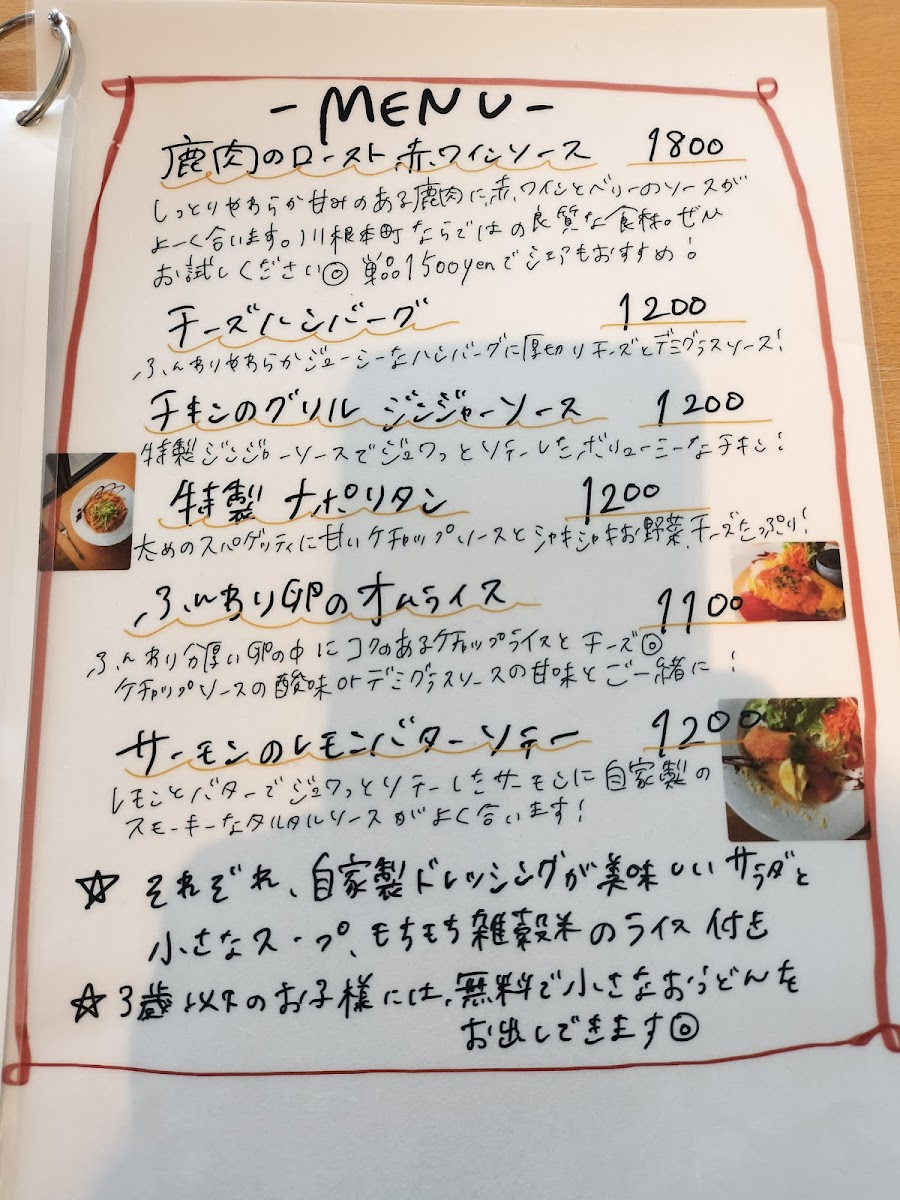 - MENU -
鹿肉のロースト 赤ワインソース 1800
しっとりやわらか甘みのある鹿肉に、赤ワインとベリーのソースが
よーく合います。川根本町ならではの良質な食材。ぜひ
お試しください◎ 単品1500yenでシェアもおすすめ!
チーズハンバーグ 1200
ふんわりやわらかジューシーなハンバーグに厚切りチーズとデミグラスソース!
チキンのグリル ジンジャーソース 1200
特製ジンジャーソースでジュワっとソテーしたボリューミーなチキン!
特製 ナポリタン 1200
太めのスパゲッティに甘いケチャップソースとシャキシャキお野菜、チーズたっぷり!
ふんわり卵のオムライス 1100
ふんわり分厚い卵の中にコクのあるケチャップライスとチーズ◎
ケチャップソースの酸味orデミグラスソースの甘味とご一緒に!
サーモンのレモンバターソテー 1200
レモンとバターでジュワっとソテーしたサーモンに自家製の
スモーキーなタルタルソースがよく合います!
☆ それぞれ、自家製ドレッシングが美味しいサラダと
小さなスープ、もちもち雑穀米のライス付き
☆ 3歳以下のお子様には、無料で小さなおうどんを
お出しできます◎